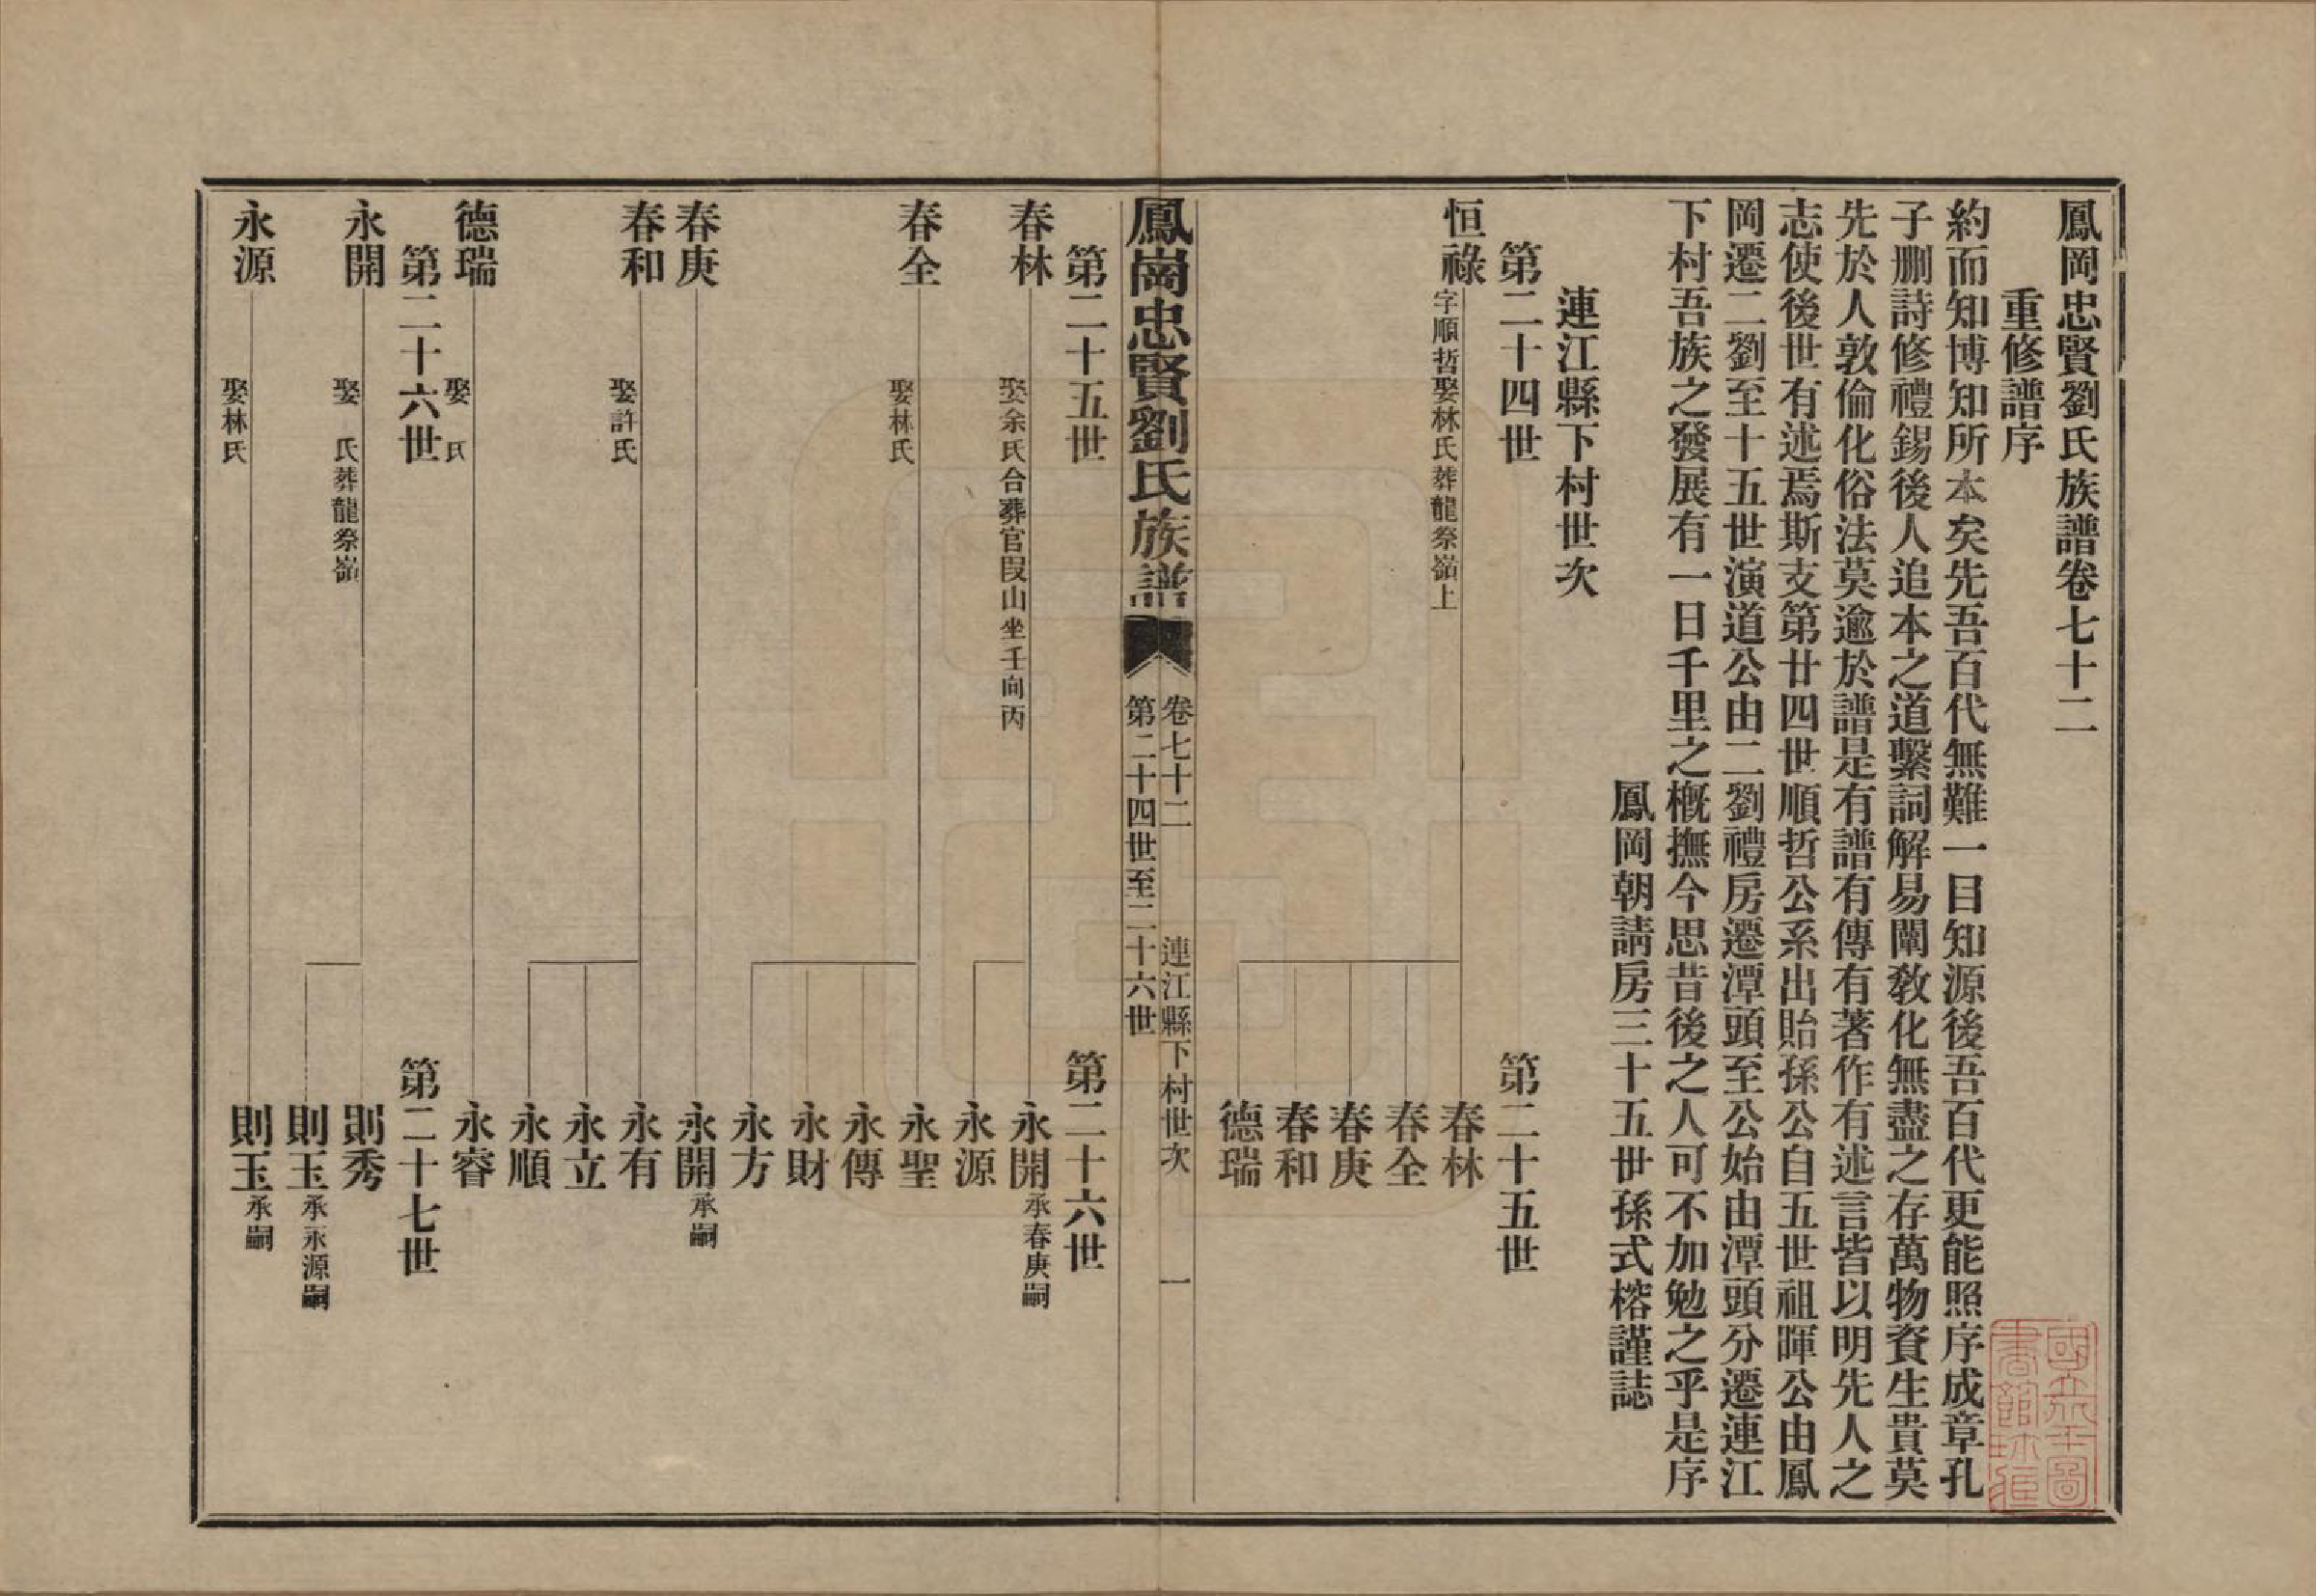 鳳岡忠賢劉氏族譜卷七十二
重修譜序
約而知博知所本矣先吾百代無難一目知源後吾百代更能照序成章孔
子刪詩修禮錫後人追本之道繫詞解易闡教化無盡之存萬物資生貴莫
先於人敦倫化俗法莫逾於譜是有譜有傳有著作有述言皆以明先人之
志使後世有述焉斯支第廿四世順哲公系出貽孫公自五世祖暉公由鳳
岡遷二劉至十五世演道公由二劉禮房遷潭頭至公始由潭頭分遷連江
下村吾族之發展有一日千里之概撫今思昔後之人可不加勉之乎是序
鳳岡朝請房三十五世孫式榕謹誌
連江縣下村世次
第二十四世 第二十五世
恒祿 字順哲娶林氏葬龍祭嶺上 春林
春全
春庚
春和
德瑞
鳳崗忠賢劉氏族譜 卷七十二 連江縣下村世次 一
第二十四世至二十六世
第二十五世 第二十六世
春林 娶余氏合葬官段山坐壬向丙 永開承春庚嗣
永源
春全 娶林氏 永聖
永傳
永財
永方
春庚 永開承嗣
春和 娶許氏 永有
永立
永順
德瑞 娶 氏 永睿
第二十六世 第二十七世
永開 娶 氏葬龍祭嶺 則秀
則玉承永源嗣
永源 娶林氏 則玉承嗣